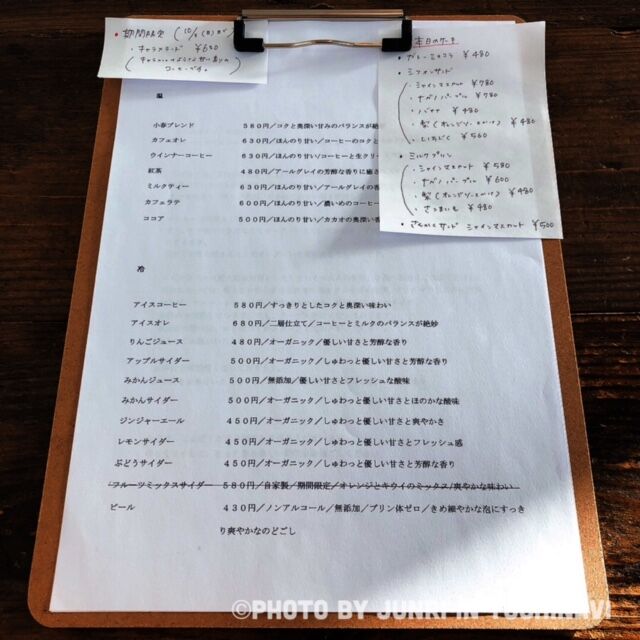 期間限定
・キャラメラード ¥650
本日のケーキ
・ガトーショコラ ¥480
・シフォンサンド
・シャインマスカット ¥780
・ナガノパープル ¥780
・バナナ ¥480
・梨 ¥480
・いちじく ¥560
・ミルクプリン
・シャインマスカット ¥580
・ナガノパープル ¥600
・梨 ¥480
・さつまいも ¥480
サンド シャインマスカット ¥500
温
小春ブレンド 580円／コクと奥深い甘みのバランスが絶
カフェオレ 630円／ほんのり甘い／コーヒーのコクと
ウインナーコーヒー 630円／ほんのり甘い／コーヒーと生クリー
紅茶 480円／アールグレイの芳醇な香りに癒さ
ミルクティー 630円／ほんのり甘い／アールグレイの香
カフェラテ 600円／ほんのり甘い／濃いめのコーヒー
ココア 500円／ほんのり甘い／カカオの奥深い香
冷
アイスコーヒー 580円／すっきりとしたコクと奥深い味わい
アイスオレ 680円／二層仕立て／コーヒーとミルクのバランスが絶妙
りんごジュース 480円／オーガニック／優しい甘さと芳醇な香り
アップルサイダー 500円／オーガニック／しゅわっと優しい甘さと芳醇な香り
みかんジュース 500円／無添加／優しい甘さとフレッシュな酸味
みかんサイダー 500円／オーガニック／しゅわっと優しい甘さとほのかな酸味
ジンジャーエール 450円／オーガニック／しゅわっと優しい甘さと爽やかさ
レモンサイダー 450円／オーガニック／しゅわっと優しい甘さとフレッシュ感
ぶどうサイダー 450円／オーガニック／しゅわっと優しい甘さと芳醇な香り
フルーツミックスサイダー 580円／自家製／期間限定／オレンジとキウイのミックス／爽やかな味わい
ビール 430円／ノンアルコール／無添加／プリン体ゼロ／きめ細やかな泡にすっき
り爽やかなのどごし
©PHOTO BY JUNKI IN YOSHINAVI